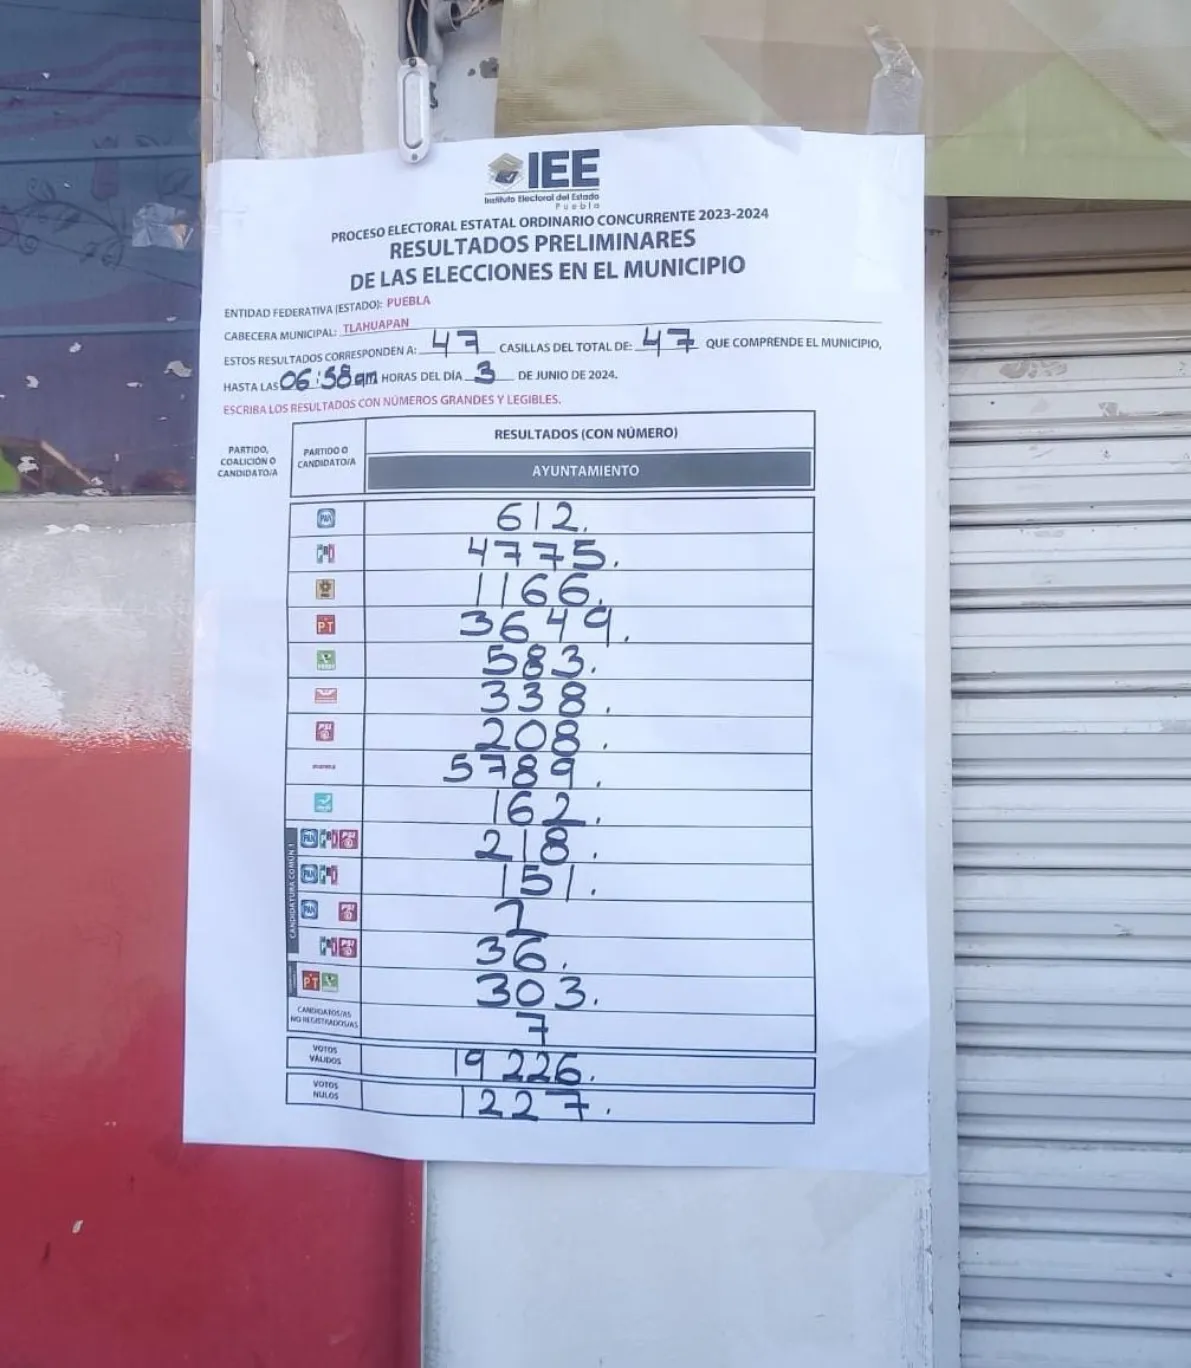 IEE
Instituto Electoral del Estado
Puebla
PROCESO ELECTORAL ESTATAL ORDINARIO CONCURRENTE 2023-2024
RESULTADOS PRELIMINARES
DE LAS ELECCIONES EN EL MUNICIPIO
ENTIDAD FEDERATIVA (ESTADO): PUEBLA
CABECERA MUNICIPAL: TLAHUAPAN
ESTOS RESULTADOS CORRESPONDEN A: 47 CASILLAS DEL TOTAL DE: 47 QUE COMPRENDE EL MUNICIPIO,
HASTA LAS 06:58am HORAS DEL DÍA 3 DE JUNIO DE 2024.
ESCRIBA LOS RESULTADOS CON NÚMEROS GRANDES Y LEGIBLES.
PARTIDO, COALICIÓN O CANDIDATO/A
PARTIDO O CANDIDATO/A
RESULTADOS (CON NÚMERO)
AYUNTAMIENTO
PAN 612.
PRI 4775.
PRD 1166.
PT 3649.
VERDE 583.
338.
PSI 208.
morena 5789.
162.
CANDIDATURA COMÚN 1
PAN PRI PSI 218.
PAN PRI 151.
PAN PSI 2
PRI PSI 36.
PT VERDE 303.
CANDIDATOS/AS NO REGISTRADOS/AS 7
VOTOS VÁLIDOS 19226.
VOTOS NULOS 1227.